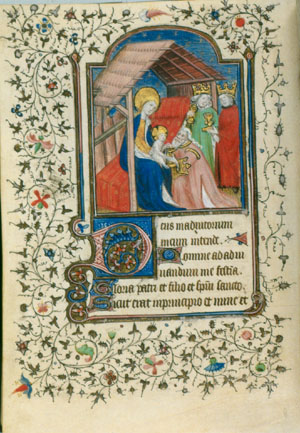 Deus in adiutorium
meum intende.
Domine ad adiu
uandum me festina.
Gloria patri et filio et spiritu sancto
Sicut erat in principio et nunc et